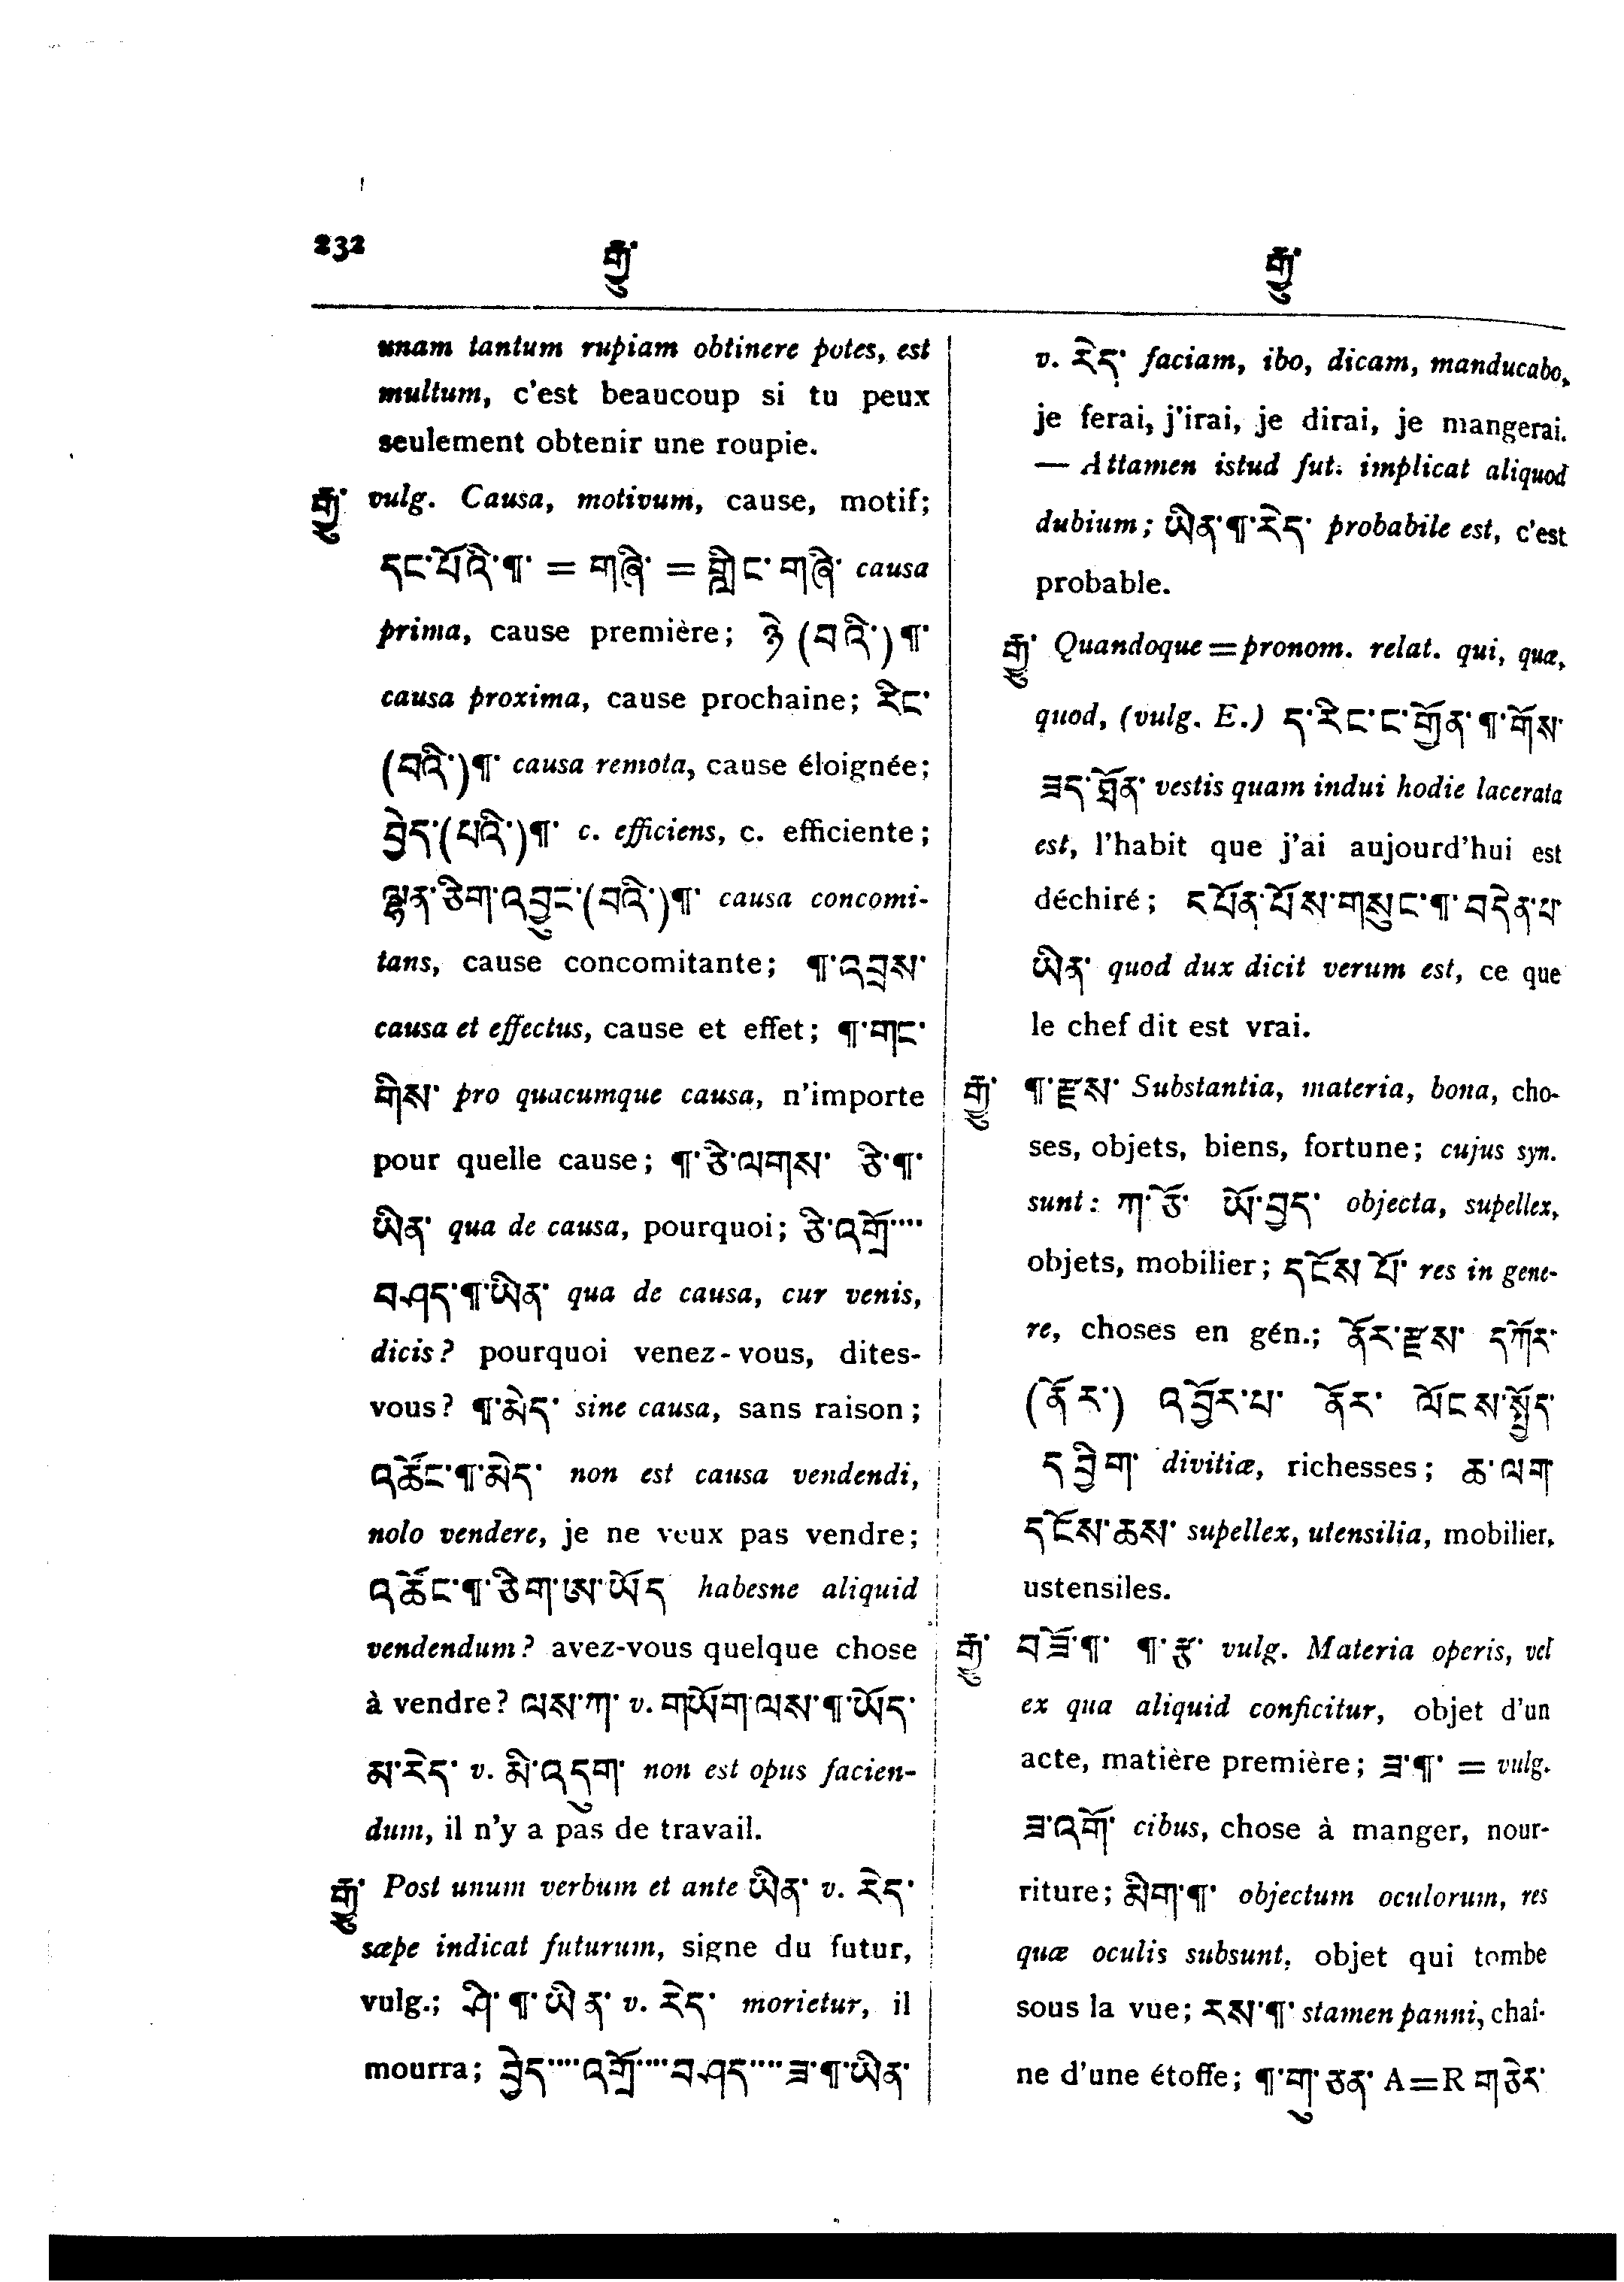 232
རྒྱུ་
རྒྱུ་
unam tantum rupiam obtinere potes, est
multum, c'est beaucoup si tu peux
seulement obtenir une roupie.
རྒྱུ་ vulg. Causa, motivum, cause, motif;
དང་པོའི་¶་ = གཞི་ = གླིང་གཞི་ causa
prima, cause première; ཉེ (བའི་)¶་
causa proxima, cause prochaine; རིང་
(བའི་)¶་ causa remota, cause éloignée;
བྱེད་(པའི་)¶་ c. efficiens, c. efficiente;
ལྷན་ཅིག་འབྱུང་(བའི་)¶་ causa concomi-
tans, cause concomitante; ¶་འབྲས་
causa et effectus, cause et effet; ¶་གང་
གིས་ pro quacumque causa, n'importe
pour quelle cause; ¶་ཅི་ལགས་ ཅི་¶་
ཡིན་ qua de causa, pourquoi; ཅི་འགྲོ....
བཤད་¶་ཡིན་ qua de causa, cur venis,
dicis? pourquoi venez-vous, dites-
vous? ¶་མེད་ sine causa, sans raison;
འཚོང་¶་མེད་ non est causa vendendi,
nolo vendere, je ne veux pas vendre;
འཚོང་¶་ཅིག་ཨ་ཡོད habesne aliquid
vendendum? avez-vous quelque chose
à vendre? ལས་ཀ་ v. གཡོག་ལས་¶་ཡོད་
མ་རེད་ v. མི་འདུག་ non est opus facien-
dum, il n'y a pas de travail.
རྒྱུ་ Post unum verbum et ante ཡིན་ v. རེད་
sæpe indicat futurum, signe du futur,
vulg.; ཤི་¶་ཡིན་ v. རེད་ morietur, il
mourra; བྱེད་....འགྲོ....བཤད་....ཟ་¶་ཡིན་
v. རེད་ faciam, ibo, dicam, manducabo,
je ferai, j'irai, je dirai, je mangerai.
— Attamen istud fut. implicat aliquod
dubium; ཡིན་¶་རེད་ probabile est, c'est
probable.
རྒྱུ་ Quandoque = pronom. relat. qui, quæ,
quod, (vulg. E.) ད་རིང་ང་གྱོན་¶་གོས་
ཟད་ཐོན་ vestis quam indui hodie lacerata
est, l'habit que j'ai aujourd'hui est
déchiré; དཔོན་པོས་གསུང་¶་བདེན་པ་
ཡིན་ quod dux dicit verum est, ce que
le chef dit est vrai.
རྒྱུ་ ¶་རྫས་ Substantia, materia, bona, cho-
ses, objets, biens, fortune; cujus syn.
sunt: ཀ་ཅོ་ ཡོ་བྱད་ objecta, supellex,
objets, mobilier; དངོས་པོ་ res in gene-
re, choses en gén.; ནོར་རྫས་ དཀོར་
(ནོར་) འབྱོར་པ་ ནོར་ ལོངས་སྤྱོད་
དབྱིག་ divitiæ, richesses; ཆ་ལག
དངོས་ཆས་ supellex, utensilia, mobilier,
ustensiles.
རྒྱུ་ བཟོ་¶་ ¶་རྩ་ vulg. Materia operis, vel
ex qua aliquid conficitur, objet d'un
acte, matière première; ཟ་¶་ = vulg.
ཟ་འགོ་ cibus, chose à manger, nour-
riture; མིག་¶་ objectum oculorum, res
quæ oculis subsunt, objet qui tombe
sous la vue; རས་¶་ stamen panni, chaî-
ne d'une étoffe; ¶་གུ་ཅན་ A=R གཅེར་